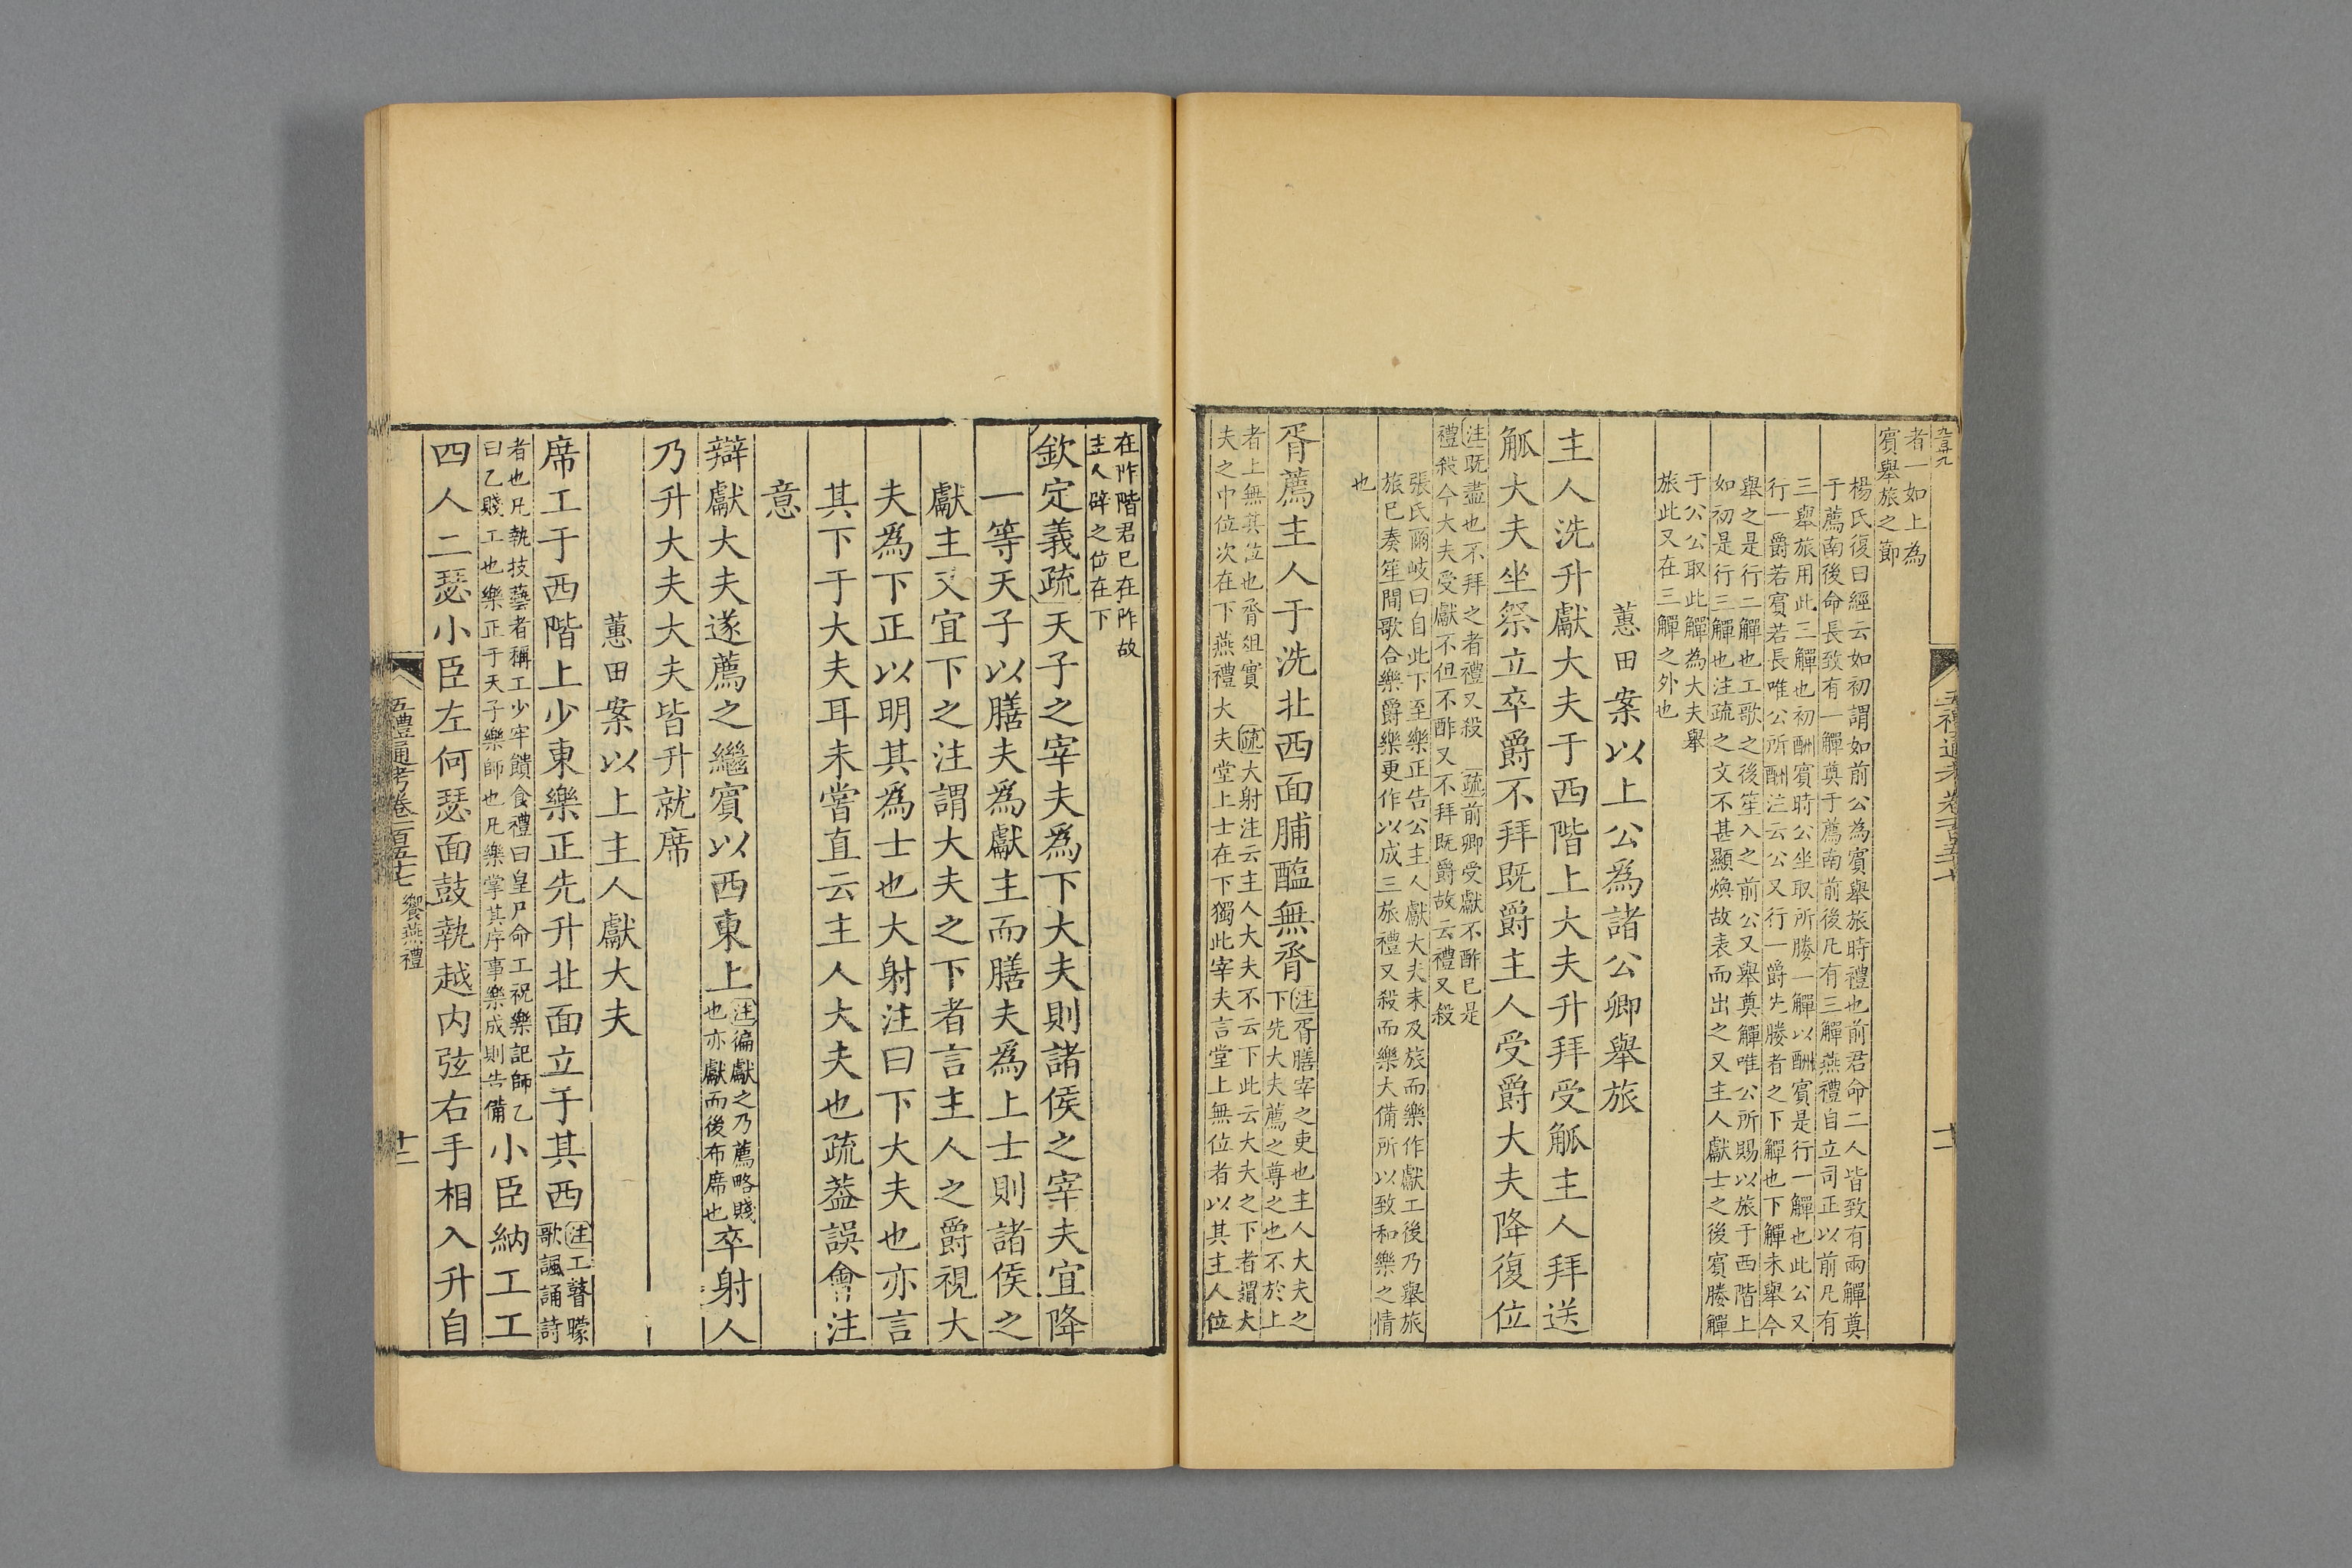 者一如上為
賓舉旅之節
楊氏復曰經云如初謂如前公為賓舉旅時禮也前君命二人皆致有兩觶奠
于薦南後命長致有一觶奠于薦南前後凡有三觶燕禮自立司正以前凡有
三舉旅用此三觶也初酬賓時公坐取所媵一觶以酬賓是行一觶也此公又
行一爵若賓若長唯公所酬注云公又行一爵先媵者之下觶也下觶未舉今
舉之是行二觶也工歌之後笙入之前公又舉奠觶唯公所賜以旅于西階上
如初是行三觶也注疏之文不甚顯煥故表而出之又主人獻士之後賓媵觶
于公公取此觶為大夫舉
旅此又在三觶之外也
蕙田案以上公爲諸公卿舉旅
主人洗升獻大夫于西階上大夫升拜受觚主人拜送
觚大夫坐祭立卒爵不拜既爵主人受爵大夫降復位
注既盡也不拜之者禮又殺 疏前卿受獻不酢已是
禮殺今大夫受獻不但不酢又不拜既爵故云禮又殺
張氏爾岐曰自此下至樂正告公主人獻大夫未及旅而樂作獻工後乃舉旅
旅已奏笙間歌合樂爵樂更作以成三旅禮又殺而樂大備所以致和樂之情
也
胥薦主人于洗北西面脯醢無脀注胥膳宰之吏也主人大夫之
下先大夫薦之尊之也不於上
者上無其位也脀俎實 疏大射注云主人大夫不云下此云大夫之下者謂大
夫之中位次在下燕禮大夫堂上士在下獨此宰夫言堂上無位者以其主人位
五禮通考卷一百五十七
十一
在阼階君已在阼故
主人辟之位在下
欽定義疏天子之宰夫爲下大夫則諸侯之宰夫宜降
一等天子以膳夫爲獻主而膳夫爲上士則諸侯之
獻主又宜下之注謂大夫之下者言主人之爵視大
夫爲下正以明其爲士也大射注曰下大夫也亦言
其下于大夫耳未嘗直云主人大夫也疏葢誤會注
意
辯獻大夫遂薦之繼賓以西東上注徧獻之乃薦略賤
也亦獻而後布席也卒射人
乃升大夫大夫皆升就席
蕙田案以上主人獻大夫
席工于西階上少東樂正先升北面立于其西注工瞽矇
歌諷誦詩
者也凡執技藝者稱工少牢饋食禮曰皇尸命工祝樂記師乙
曰乙賤工也樂正于天子樂師也凡樂掌其序事樂成則告備小臣納工工
四人二瑟小臣左何瑟面鼓執越内弦右手相入升自
五禮通考卷一百五十七 饗燕禮
十二